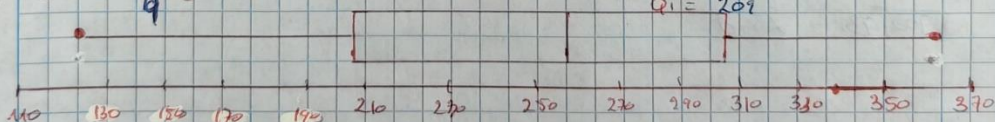 9 Q₁ = 209
110 130 150 170 190 210 230 250 270 290 310 330 350 370